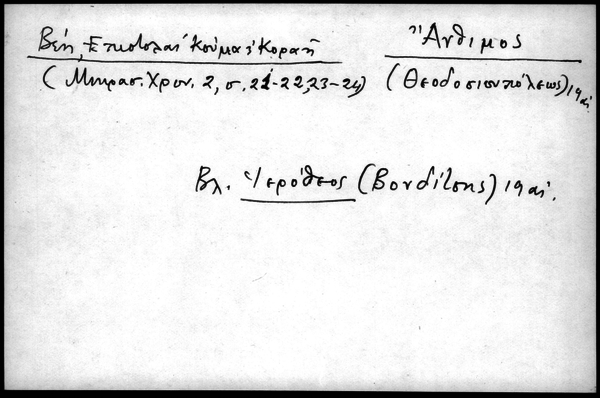 Βέη, Ἐπιστολαὶ Κούμα & Κοραῆ
(Μικρασ. Χρον. 2, σ. 21-22, 23-24)
Ἄνθιμος
(Θεοδοσιουπόλεως) 19 αἰ.
Βλ. Ἱερόθεος (Βονδίτσης) 19 αἰ.